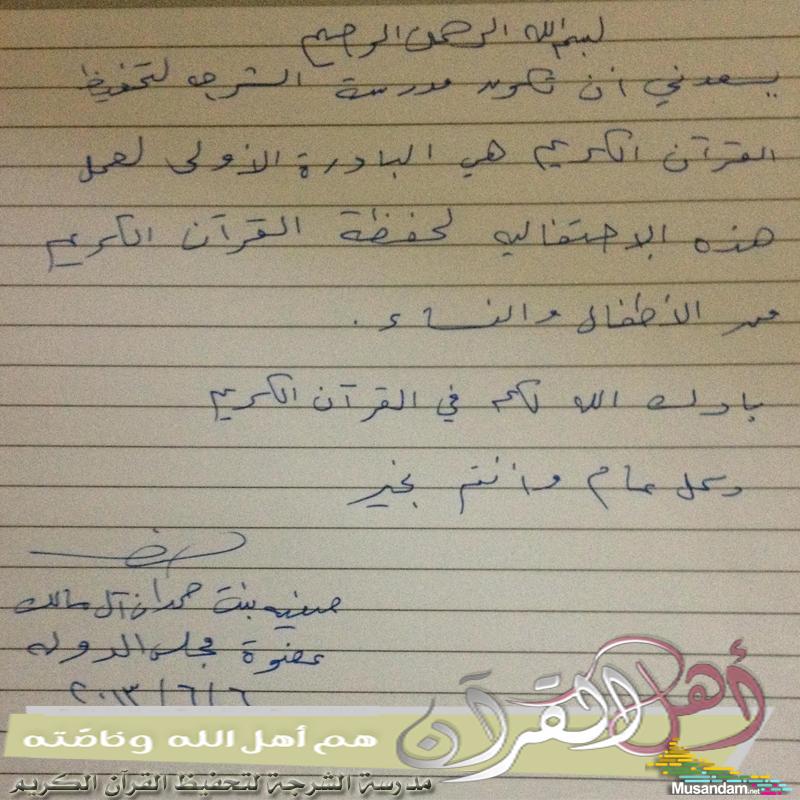 بسم الله الرحمن الرحيم
يسعدني أن تكون مدرسة الشرجه لتحفيظ
القرآن الكريم هي البادرة الأولى لعمل
هذه الإحتفاليه لحفظة القرآن الكريم
من الأطفال والنساء .
بارك الله لكم في القرآن الكريم
وكل عام وأنتم بخير
صفيه بنت حمدان آل مالك
عضوة مجلس الدوله
٢٠١٣/٦/٦
أهل القرآن
هم أهل الله وخاصته
مدرسة الشرجة لتحفيظ القرآن الكريم
Musandam.net